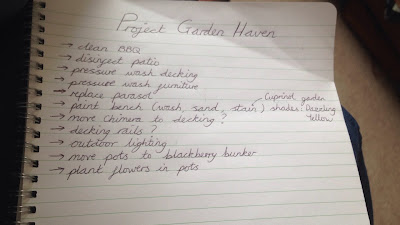 Project Garden Haven
→ clean BBQ
→ disinfect patio
→ pressure wash decking
→ pressure wash furniture
→ replace parasol
→ paint bench (wash, sand, stain) Cuprinol garden shades: Dazzling Yellow
→ move chimira to decking?
→ decking rails?
→ outdoor lighting
→ move pots to blackberry bunker
→ plant flowers in pots